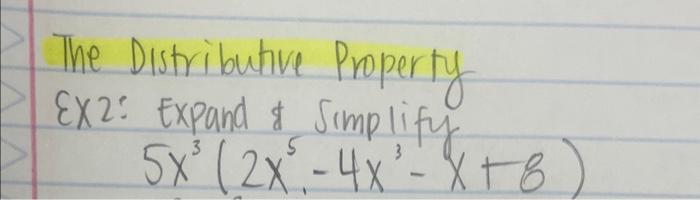 The Distributive Property
Ex2: Expand & Simplify
5x³(2x⁵-4x³-x+8)